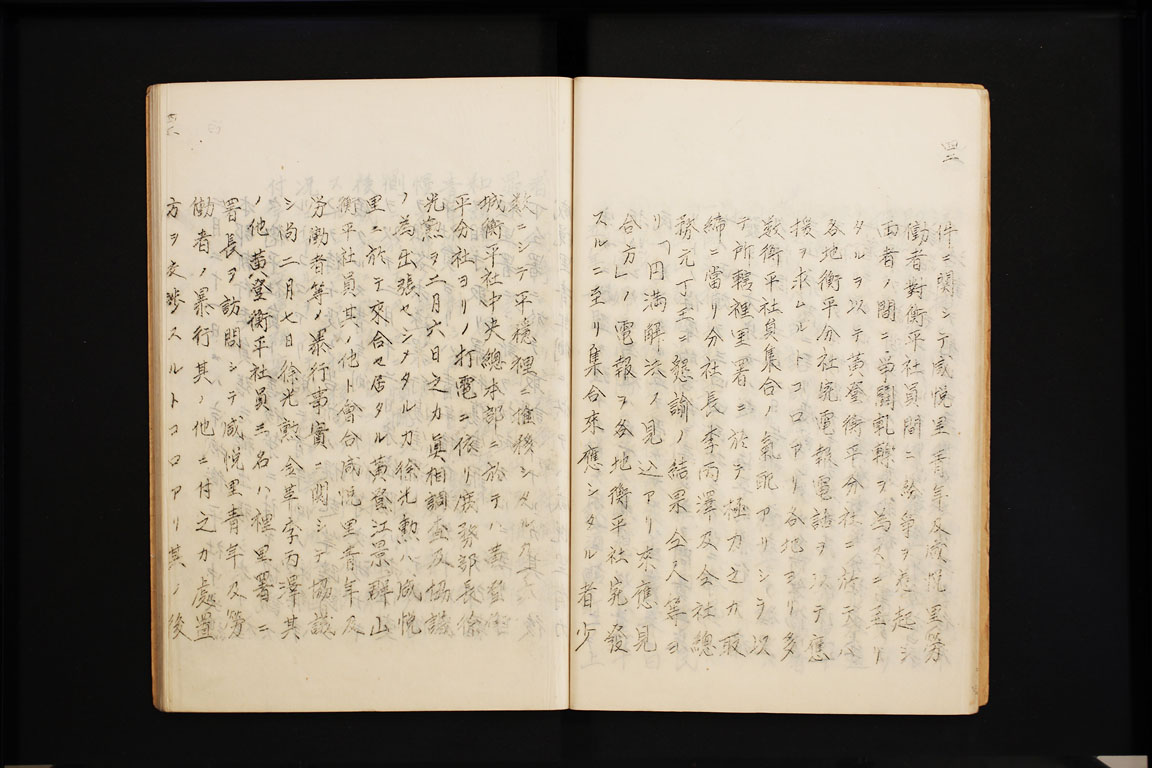 四二
件ニ關シテ咸悅里青年及咸悅里労
働者對衡平社員間ニ紛争ヲ惹起シ
両者ノ間ニ争鬪軋轢ヲ為スニ至リ
タルヲ以テ黄登衡平分社ニ於テハ
各地衡平分社宛電報電話ヲ以テ應
援ヲ求ムルトコロアリ各地ヨリ多
數衡平社員集合ノ氣配アリシヲ以
テ所轄裡里署ニ於テ極力之カ取
締ニ當リ分社長李丙澤及仝社總
務元丁玉ニ懇諭ノ結果仝人等ヨ
リ「円満解決ノ見込アリ來應見
合方」ノ電報ヲ各地衡平社宛發
スルニ至リ集合來應シタル者少
數ニシテ平穏裡ニ推移シタル
城衡平社中央總本部ニ於テハ黄登衡
平分社ヨリノ打電ニ依リ庶務部長徐
光勲ヲ二月六日之カ眞相調査及協議
ノ為出張セシメタルカ徐光勲ハ咸悅
里ニ於テ來合セ居タル黄登江景
山
衡平社員其ノ他ト會合咸悅里青年及
労働者等ノ暴行事實ニ関シテ協議
シ尚二月七日徐光勲仝革李丙澤其
ノ他黄登衡平社員三名ハ裡里署ニ
署長ヲ訪問シテ咸悅里青年及労
働者ノ暴行其ノ他ニ付之カ處置
方ヲ交渉スルトコロアリ其ノ後